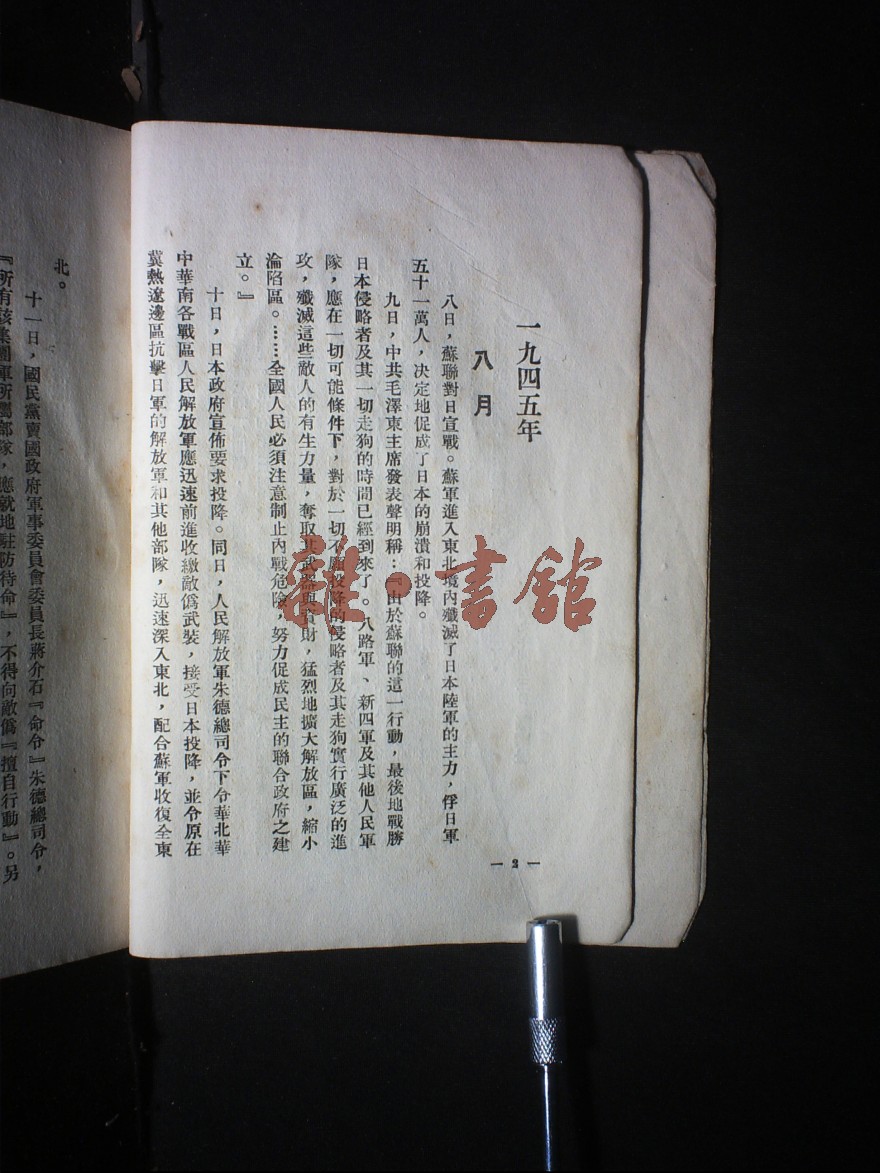 一九四五年
八月
八日，蘇聯對日宣戰。蘇軍進入東北境內殲滅了日本陸軍的主力，俘日軍
五十一萬人，決定地促成了日本的崩潰和投降。
九日，中共毛澤東主席發表聲明稱：『由於蘇聯的這一行動，最後地戰勝
日本侵略者及其一切走狗的時間已經到來了。八路軍、新四軍及其他人民軍
隊，應在一切可能條件下，對於一切不願投降的侵略者及其走狗實行廣泛的進
攻，殲滅這些敵人的有生力量，奪取其武器與資財，猛烈地擴大解放區，縮小
淪陷區。……全國人民必須注意制止內戰危險，努力促成民主的聯合政府之建
立。』
十日，日本政府宣佈要求投降。同日，人民解放軍朱德總司令下令華北華
中華南各戰區人民解放軍應迅速前進收繳敵僞武裝，接受日本投降，並令原在
冀熱遼邊區抗擊日軍的解放軍和其他部隊，迅速深入東北，配合蘇軍收復全東
— 2 —
北。
十一日，國民黨賣國政府軍事委員會委員長蔣介石『命令』朱德總司令，
『所有該集團軍所屬部隊，應就地駐防待命』，不得向敵僞『擅自行動』。另
雜·書館